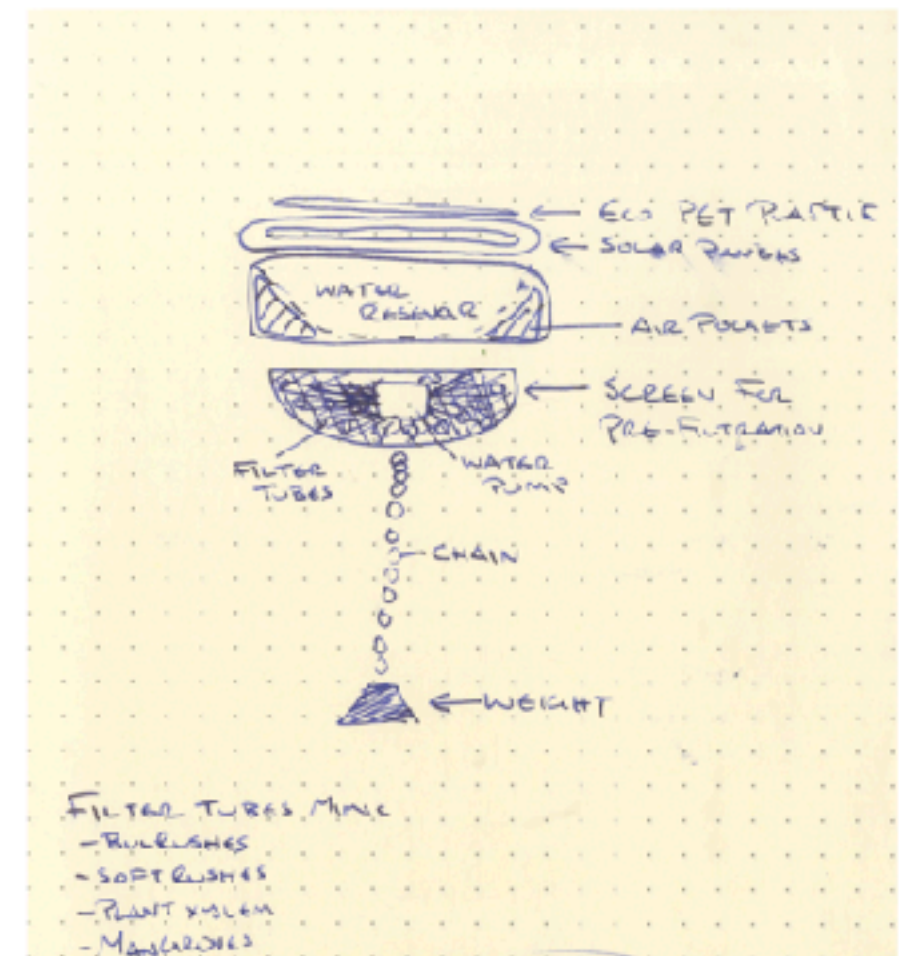 ECO PET PLASTIC
SOLAR PANELS
WATER
RESEVOR
AIR POCKETS
SCREEN FOR
PRE-FILTRATION
FILTER
TUBES
WATER
PUMP
CHAIN
WEIGHT
FILTER TUBES MIMIC
- BULRUSHES
- SOFT RUSHES
- PLANT XYLEM
- MANGROVES